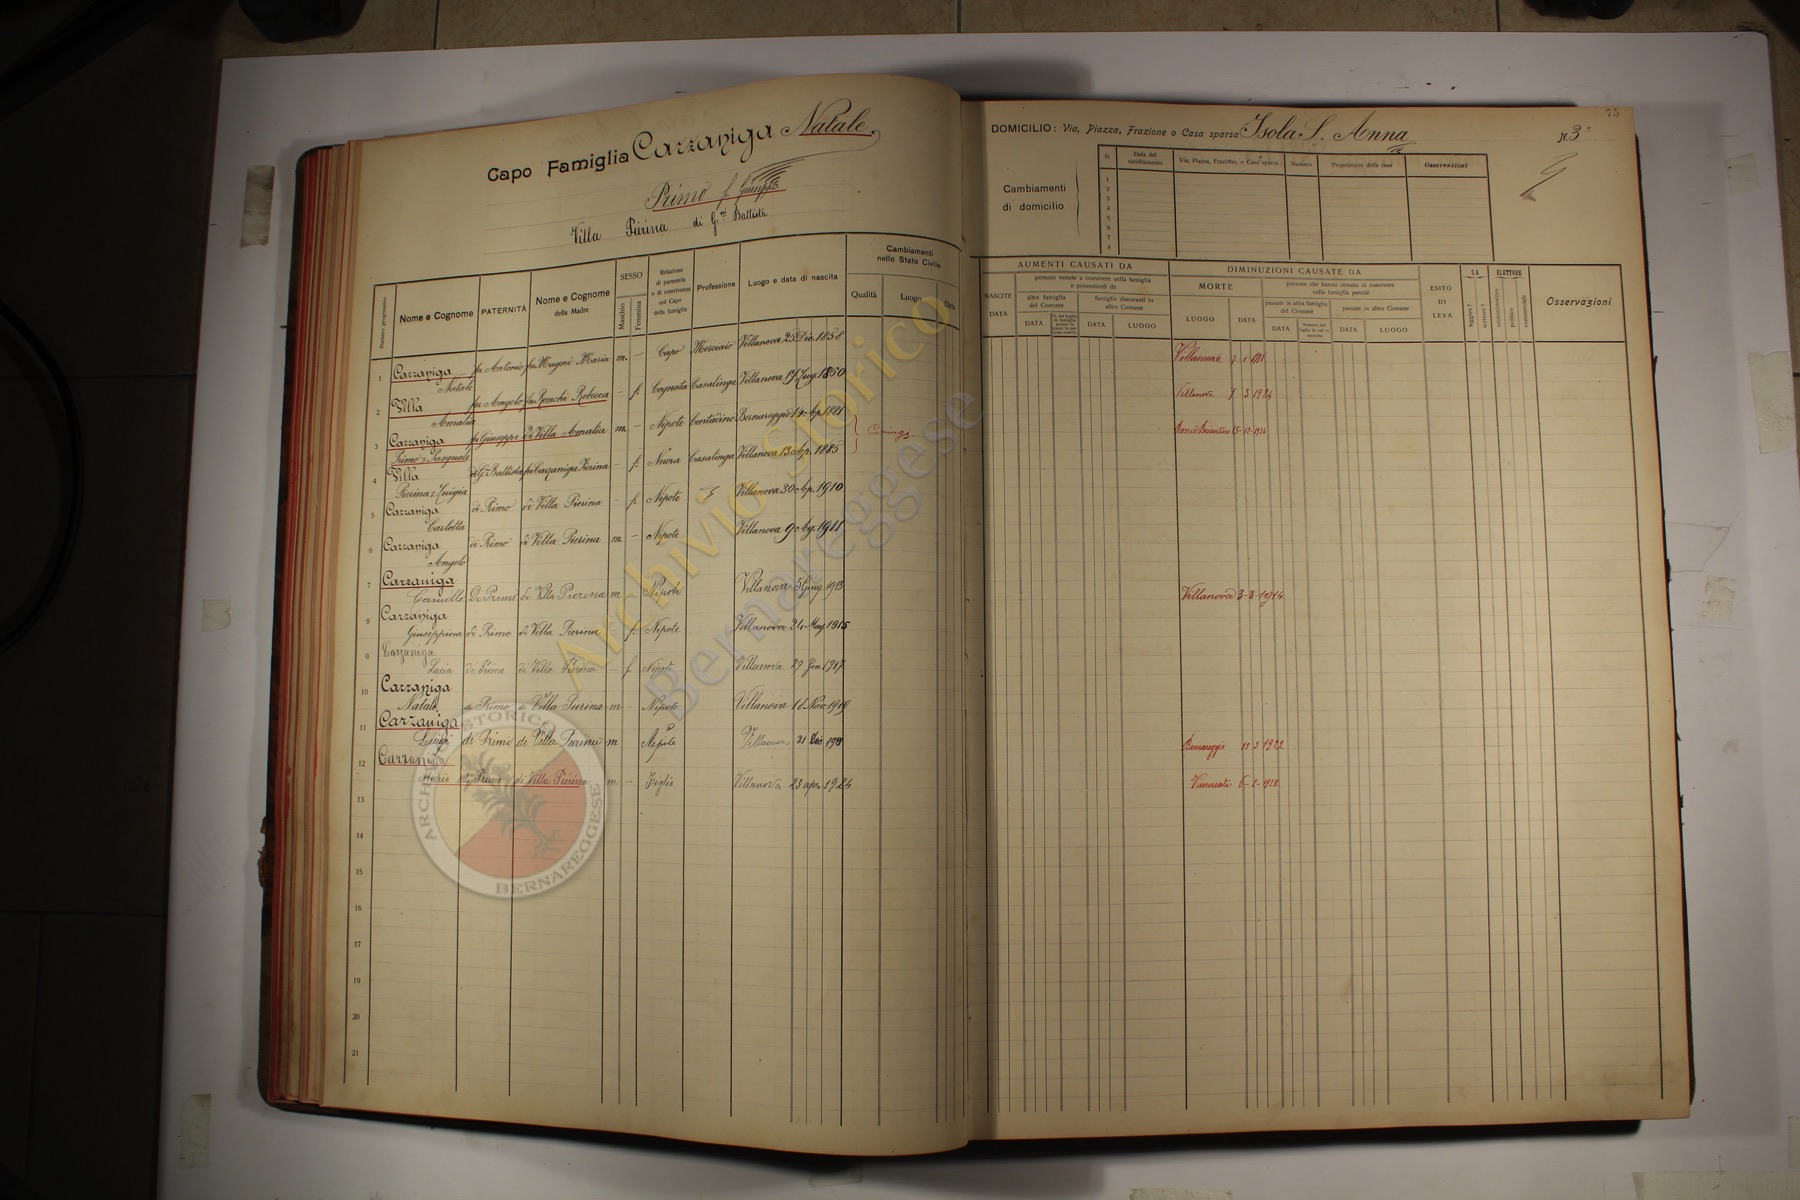 Capo Famiglia Cazzaniga Natale
Primo f. Giuseppe
Villa Pierina di G.ni Battista
Numero progressivo
Nome e Cognome
PATERNITÀ
Nome e Cognome della Madre
SESSO
Maschio
Femmina
Relazione di parentela o di convivenza col Capo della famiglia
Professione
Luogo e data di nascita
Cambiamenti nello Stato Civile
Qualità
Luogo
Data
1 Cazzaniga Natale fu Antonio fu Magni Maria m. – Capo Merciaio Villanova 25 Dic. 1858
2 Villa Amalia fu Angelo fu Ronchi Rebecca – f. Cognata Casalinga Villanova 17 Lug. 1850
3 Cazzaniga Primo Pasquale fu Giuseppe di Villa Amalia m. – Nipote Contadino Bernareggio 14 Ap. 1881
Coniugi
4 Villa Pierina Luigia di G. Battista fu Cazzaniga Pierina – f. Nuora Casalinga Villanova 13 Ap. 1885
5 Cazzaniga Carlotta di Primo di Villa Pierina – f. Nipote Villanova 30 Ap. 1910
6 Cazzaniga Angelo di Primo di Villa Pierina m. – Nipote Villanova 9 Ag. 1911
7 Cazzaniga Camillo Di Primo di Villa Pierina m Nipote Villanova 5 Giug. 1913
8 Cazzaniga Giuseppina di Primo di Villa Pierina f. Nipote Villanova 24 Mag. 1915
9 Cazzaniga Lucia di Primo di Villa Pierina – f Nipote Villanova 29 Gen. 1917
10 Cazzaniga Natale di Primo di Villa Pierina m – Nipote Villanova 18 Nov. 1919
11 Cazzaniga Luigi di Primo di Villa Pierina m Nipote Villanova 21 Dic
12 Cazzaniga di Primo di Villa Pierina m. – Figlio Villanova 23 apr. 1924
13
14
15
16
17
18
19
20
21
75
DOMICILIO: Via, Piazza, Frazione o Casa sparsa Isola S. Anna N. 3
Cambiamenti di domicilio
N.
Data del cambiamento
Via, Piazza, Frazione, o Casa sparsa
Numero
Proprietario della casa
Osservazioni
1
2
3
4
5
6
7
8
AUMENTI CAUSATI DA
NASCITE
DATA
persone venute a convivere nella famiglia e provenienti da
altra famiglia del Comune
DATA
famiglie dimoranti in altro Comune
DATA
LUOGO
DIMINUZIONI CAUSATE DA
MORTE
LUOGO
DATA
persone che hanno cessato di convivere colla famiglia perchè
passate in altra famiglia del Comune
DATA
passate in altro Comune
DATA
LUOGO
ESITO DI LEVA
SA
leggere?
scrivere?
ELETTORE
amministrativo
politico
commerciale
Osservazioni
Villanova
Villanova 7 3 1924
15-12-1924
Villanova 3-3-1914
Bernareggio 15 3 1922
Vimercate 6-2-1928
Archivio Storico
Bernareggese
ARCHIVIO STORICO
BERNAREGGESE